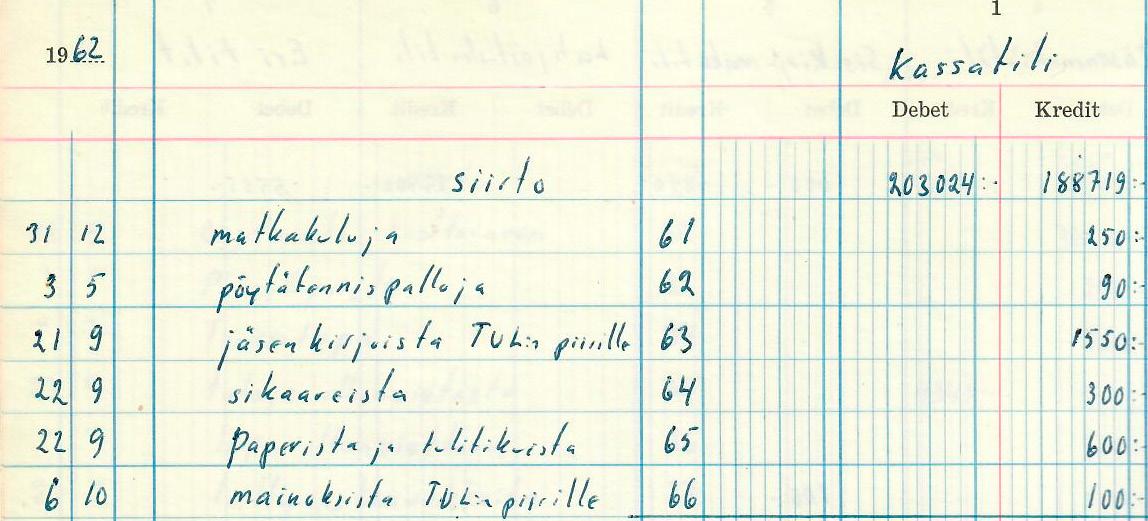 1
1962 Kassatili
Debet Kredit
siirto 203024:- 188719:-
31 12 matkakuluja 61 250:-
3 5 pöytätennispalloja 62 90:-
21 9 jäsenkirjoista TUL:n piirille 63 1550:-
22 9 sikaareista 64 300:-
22 9 Paperista ja tulitikuista 65 600:-
6 10 mainoksista TUL:n piirille 66 100:-